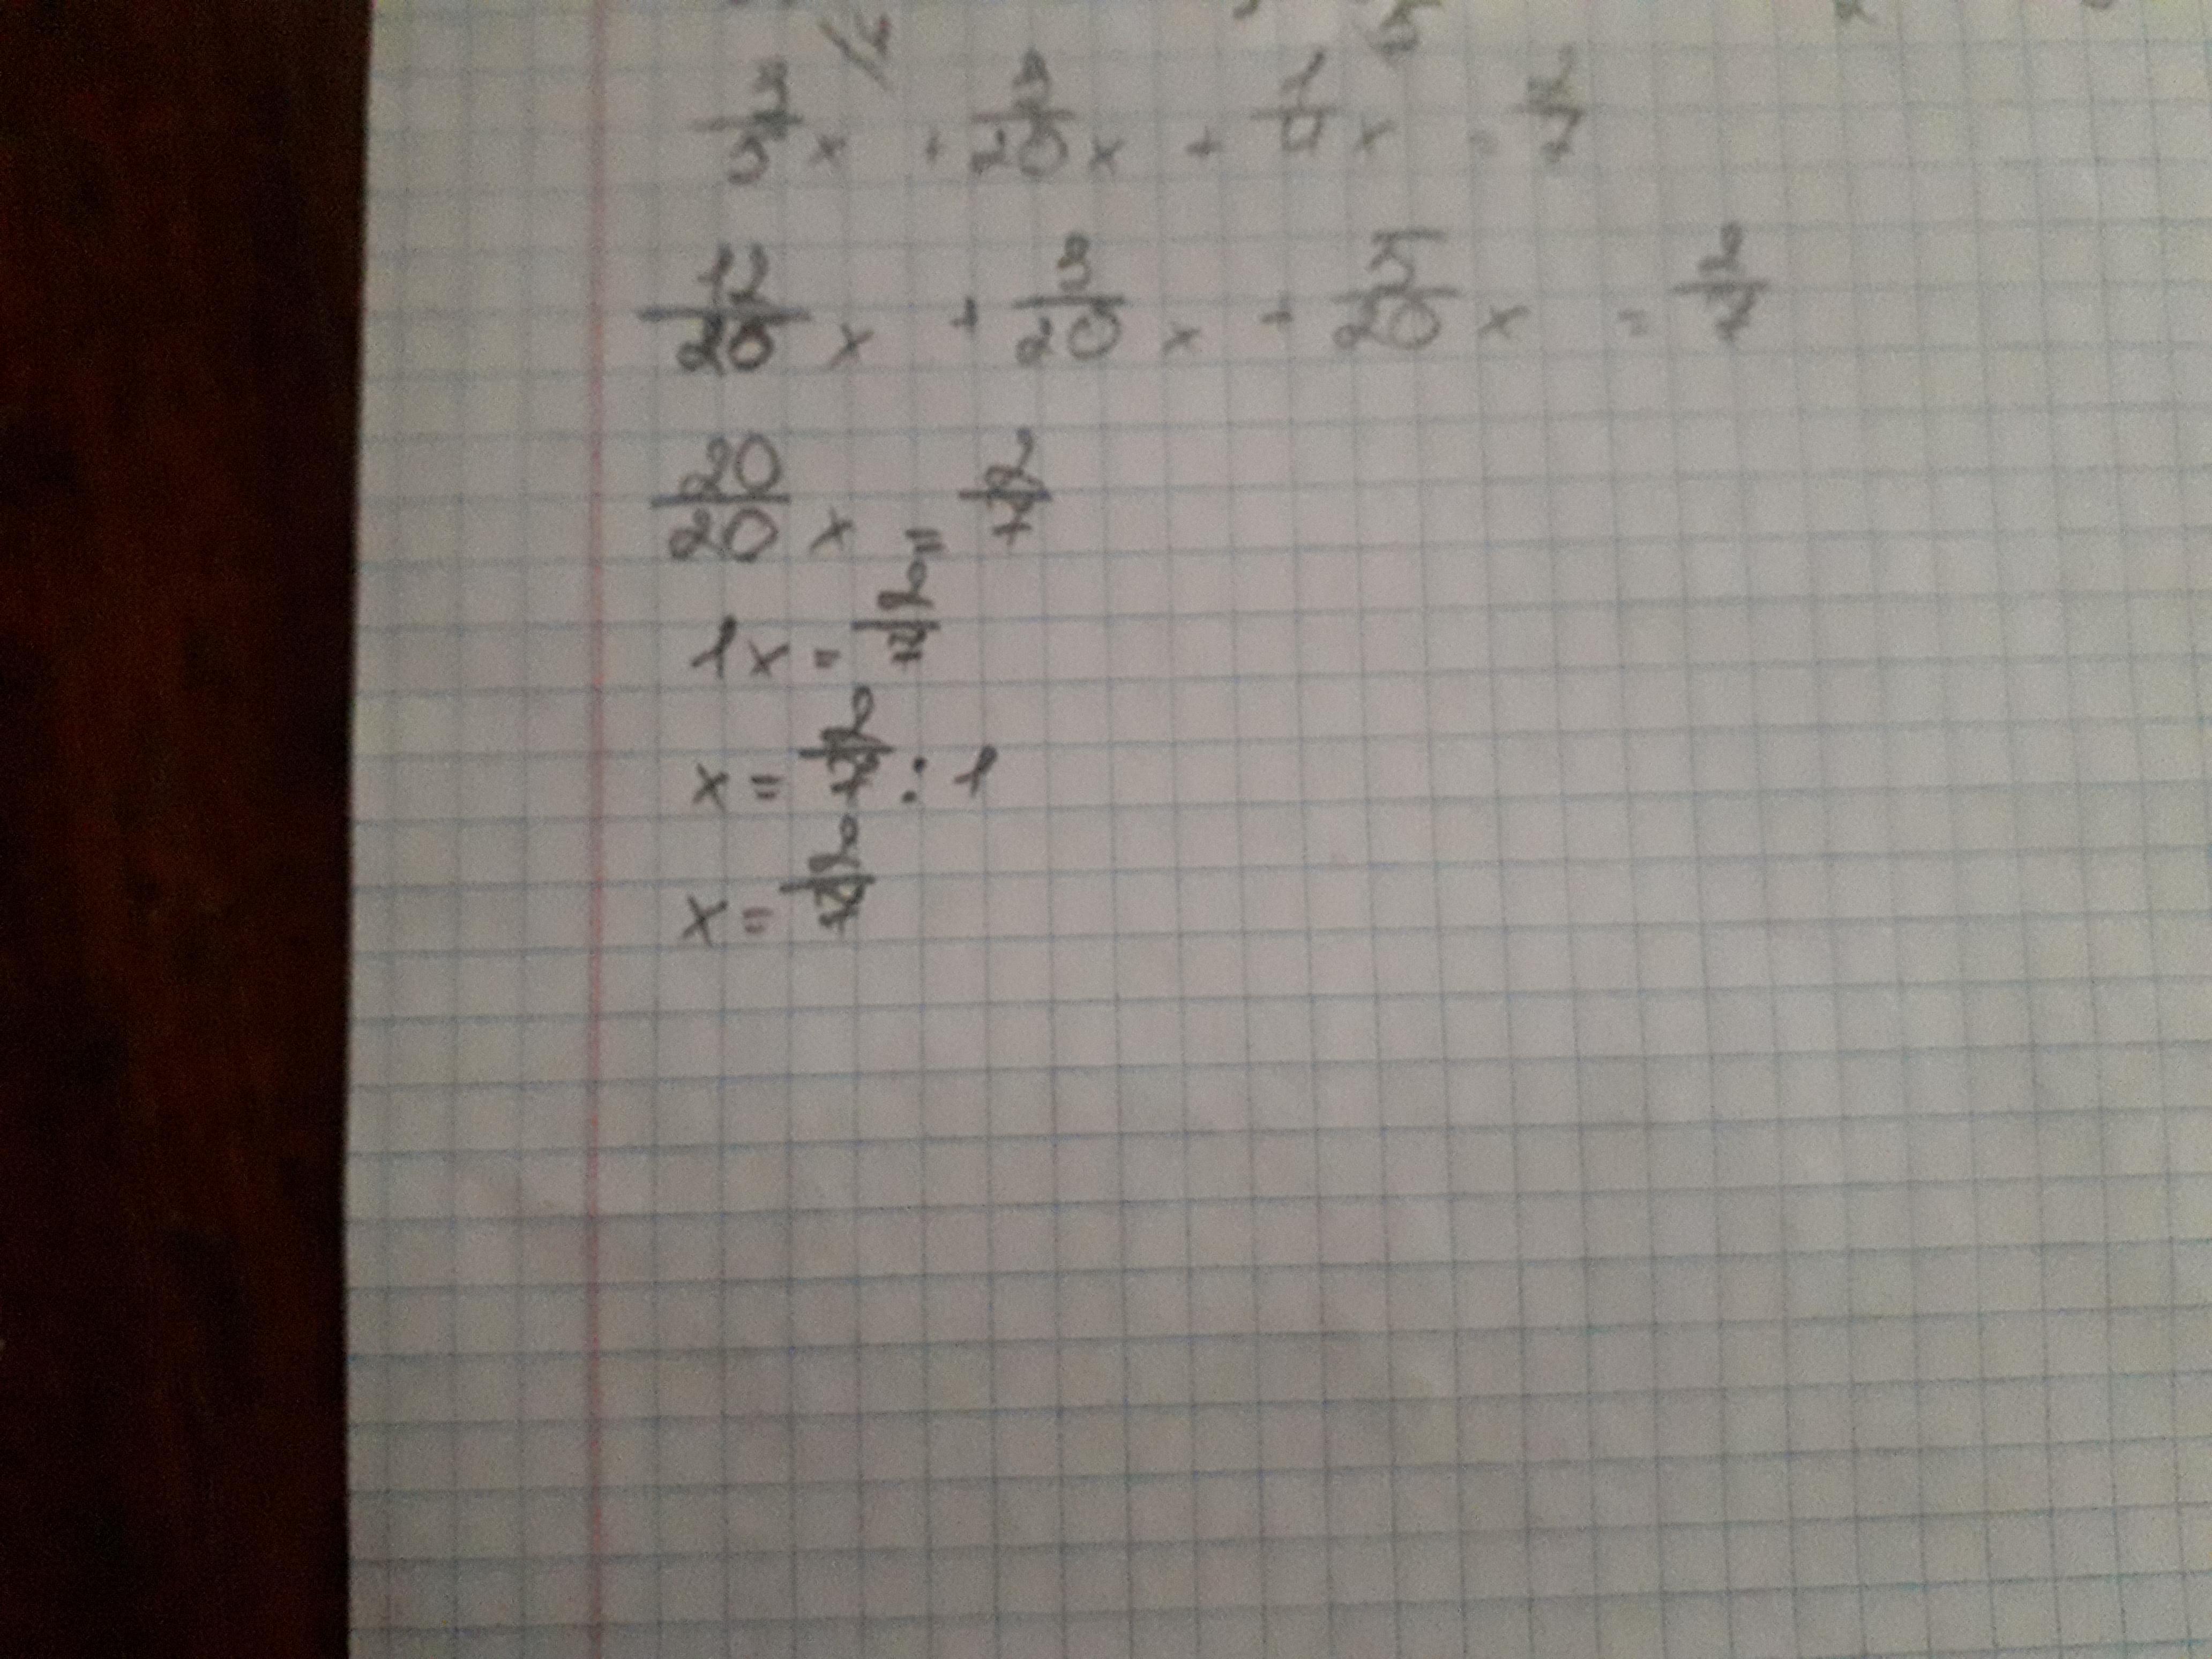 3/5 x + 3/20 x + 1/4 x = 2/7
12/20 x + 3/20 x + 5/20 x = 2/7
20/20 x = 2/7
1x = 2/7
x = 2/7 : 1
x = 2/7